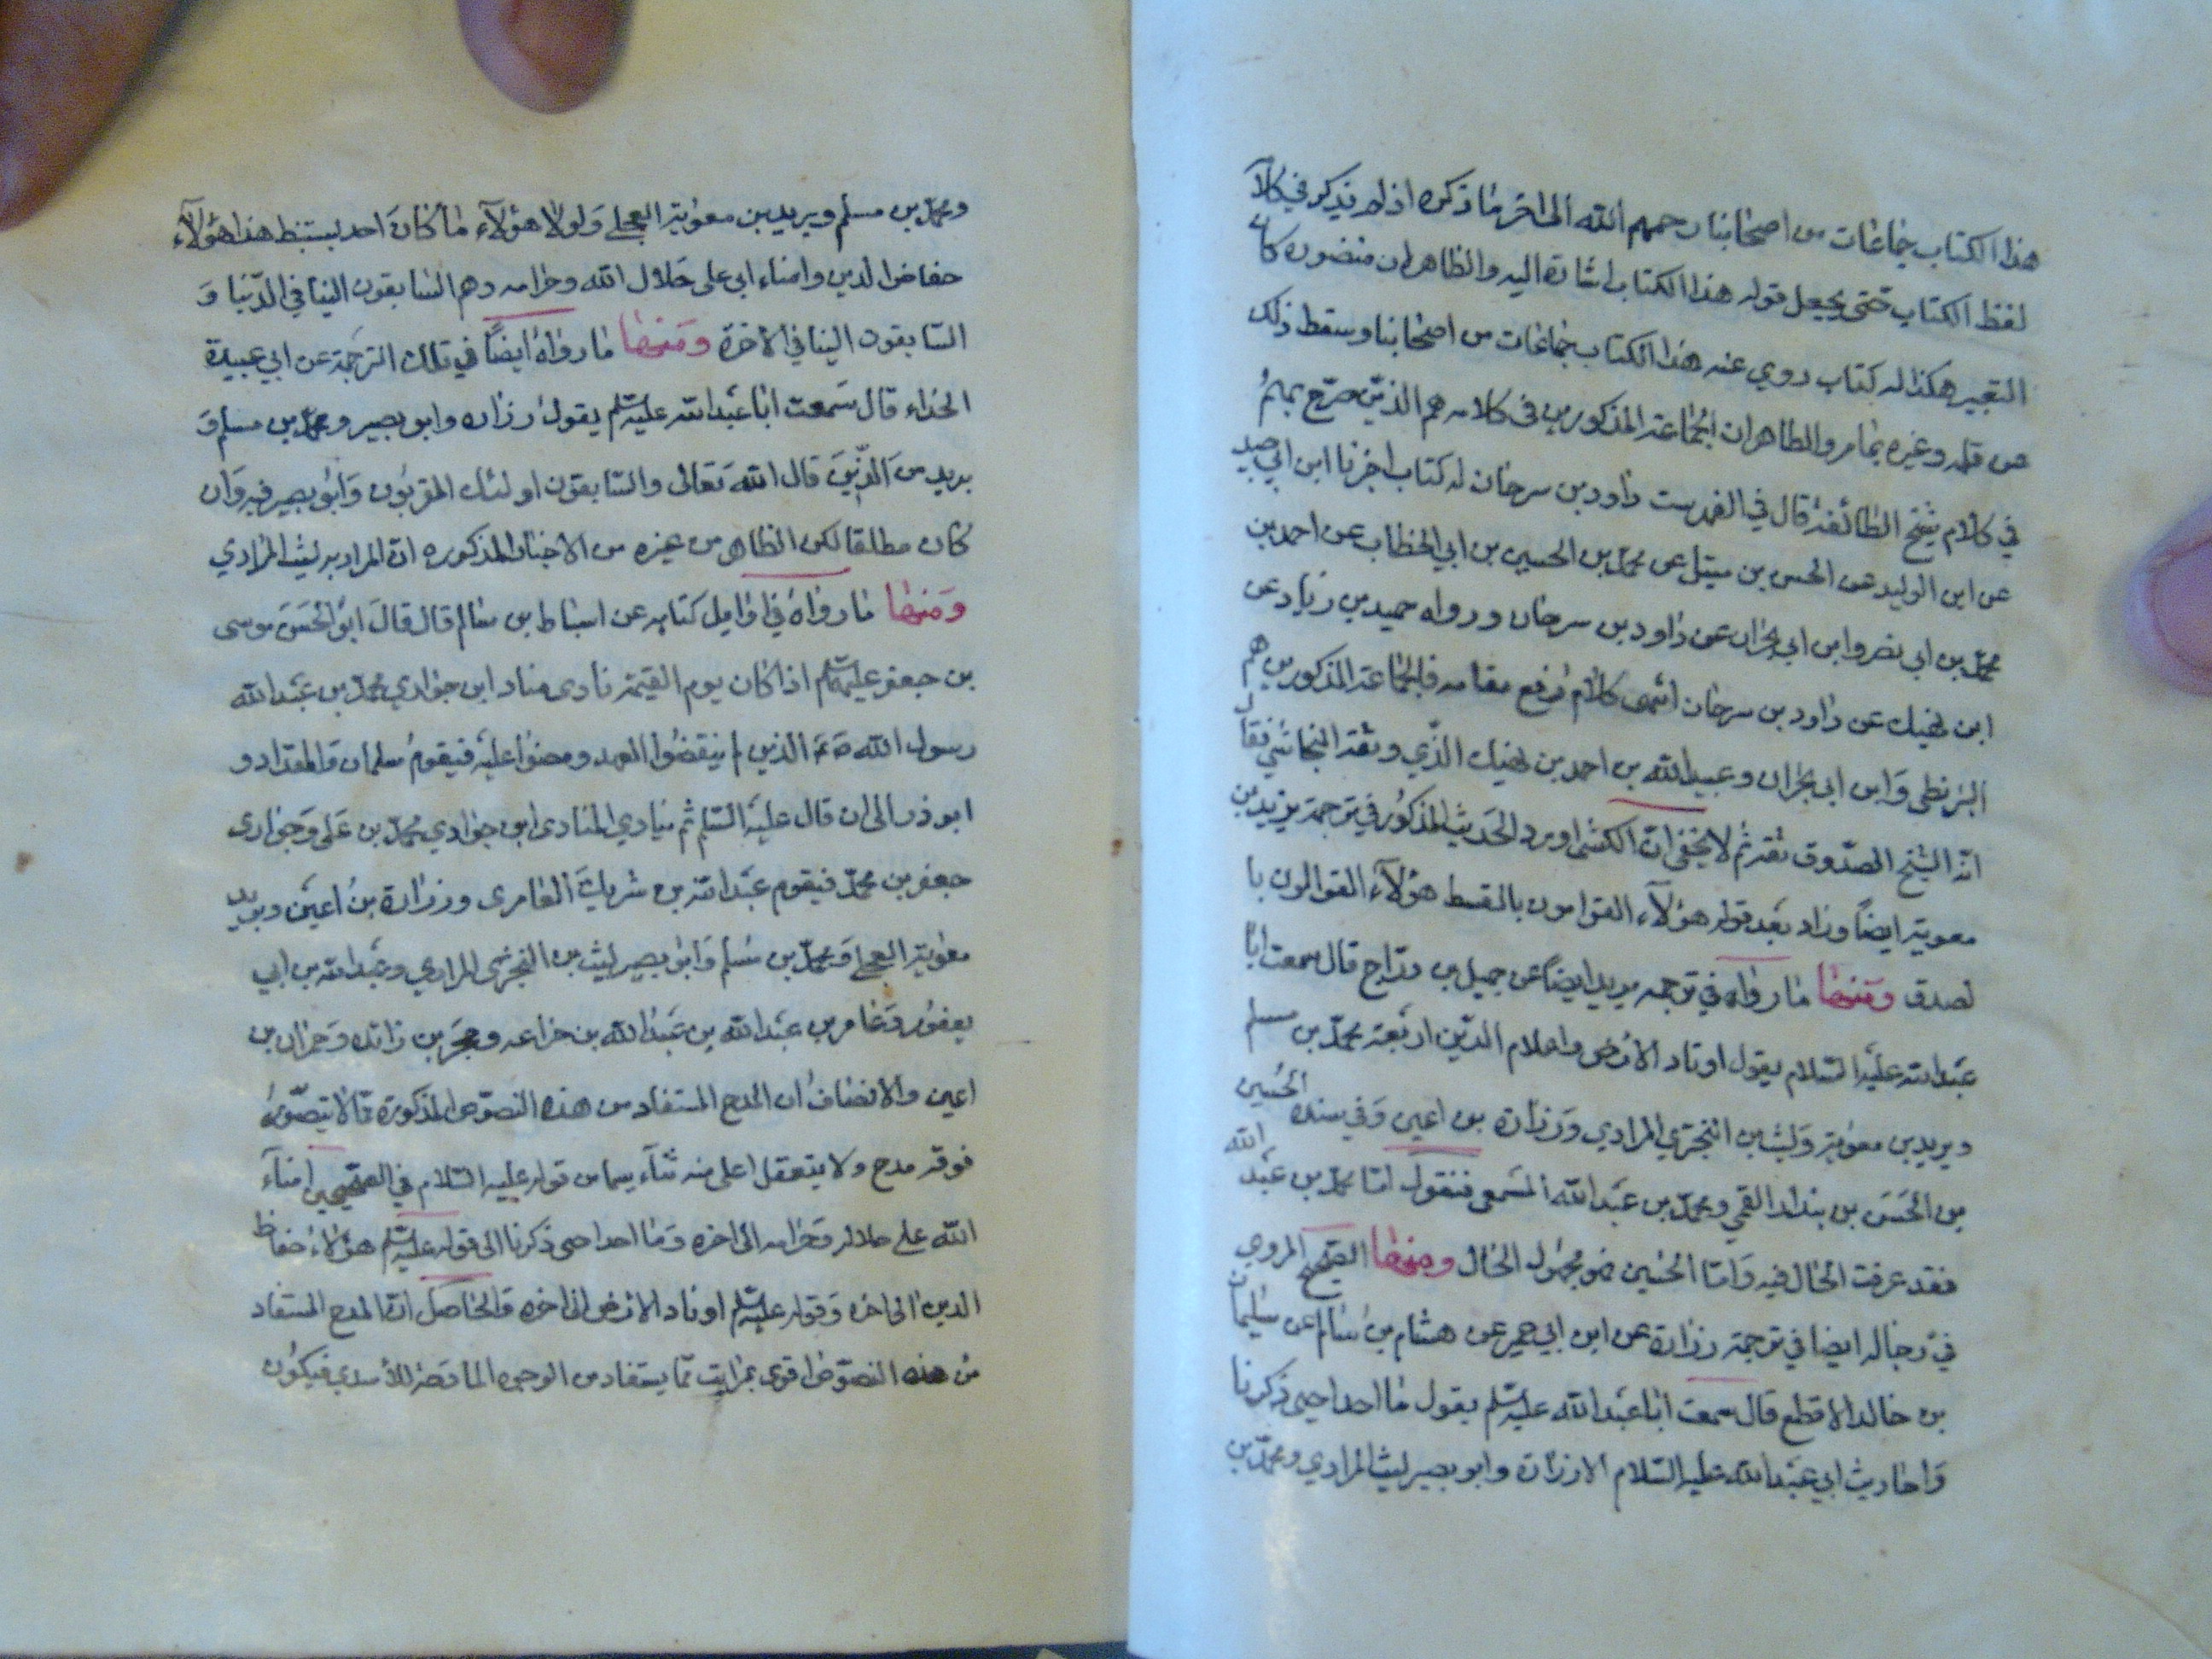 هذا الكتاب جماعات من اصحابنا رحمهم الله الى اخر ما ذكره اذ لم يذكر في كلا
لفظ الكتاب حتى يجعل قوله هذا الكتاب اشارة اليه والظاهر ان مقصوده كان
التعبير هكذا له كتاب روي عنه هذا الكتاب جماعات من اصحابنا وسقط ذلك
من قلمه وغيره بما مر والظاهر ان الجماعة المذكورين في كلامه هم الذين صرح بهم
في كلام شيخ الطائفة قال في الفهرست داود بن سرحان له كتاب اخبرنا ابن ابي جيد
عن ابن الوليد عن الحسن بن متيل عن محمد بن الحسين بن ابي الخطاب عن احمد بن
محمد بن ابي نصر وابن ابي نجران عن داود بن سرحان ورواه حميد بن زياد عن
ابن نهيك عن داود بن سرحان انتهى كلامه رفع مقامه فالجماعة المذكورين هم
البزنطي وابن ابي نجران وعبيد الله بن احمد بن نهيك الذي وثقه النجاشي فقال
انه الشيخ الصدوق ثقة ثم لا يخفى ان الكشي اورد الحديث المذكور في ترجمة بريد بن
معوية ايضاً وزاد بعد قوله هؤلآء القوامون بالقسط هؤلآء القوالون با
لصدق ومنها ما رواه في ترجمه بريد ايضاً عن جميل بن دراج قال سمعت ابا
عبد الله عليه السلام يقول اوتاد الارض واعلام الدين اربعة محمد بن مسلم
وبريد بن معوية وليث بن البختري المرادي وزرارة بن اعين وفي سنده الحسين
بن الحسن بن بندار القمي ومحمد بن عبد الله المسمعي فنقول اما محمد بن عبد الله
فقد عرفت الحال فيه واما الحسين فهو مجهول الحال ومنها الصحيح المروي
في رجاله ايضا في ترجمة زرارة عن ابن ابي عمير عن هشام بن سالم عن سليمان
بن خالد الاقطع قال سمعت ابا عبد الله عليه السلم يقول ما احد احيى ذكرنا
واحاديث ابي عبد الله عليه السلام الا زرارة وابو بصير ليث المرادي ومحمد بن
ومحمد بن مسلم وبريد بن معوية العجلي ولولا هؤلآء ما كان احد يستنبط هذا هؤلآء
حفاظ الدين وامناء ابي على حلال الله وحرامه وهم السابقون الينا في الدنيا و
السابقون الينا في الاخرة ومنها ما رواه ايضاً في تلك الترجمة عن ابي عبيدة
الحذاء قال سمعت ابا عبد الله عليه السلم يقول زرارة وابو بصير ومحمد بن مسلم و
بريد من الذين قال الله تعالى والسابقون اولئك المقربون وابو بصير فيه وان
كان مطلقا لكن الظاهر من غيره من الاخبار المذكوره ان المراد به ليث المرادي
ومنها ما رواه في اوايل كتابه عن اسباط بن سالم قال قال ابو الحسن موسى
بن جعفر عليهما السلم اذا كان يوم القيمة نادى مناد اين حواري محمد بن عبد الله
رسول الله ص الذين لم ينقضوا العهد ومضوا عليه فيقوم سلمان والمقداد و
ابو ذر الى ان قال عليه السلم ثم ينادي المنادى اين حواري محمد بن علي وحواري
جعفر بن محمد فيقوم عبد الله بن شريك العامري وزرارة بن اعين وبريد
معوية العجلي ومحمد بن مسلم وابو بصير ليث بن البختري المرادي وعبد الله بن ابي
يعفور وعامر بن عبد الله بن عبد الله بن خزاعه وحجر بن زائده وحمران بن
اعين والانصاف ان المدح المستفاد من هذه النصوص المذكورة مما لا يتصور
فوقه مدح ولا يتعقل اعلى منه ثنآء سيما من قوله عليه السلام في الصحيحين امنآء
الله على حلاله وحرامه الى اخره وما احد احيى ذكرنا الى قوله عليه السلم هؤلاء حفاظ
الدين الى اخره وقوله عليه السلم اوتاد الارض الى اخره والحاصل ان المدح المستفاد
من هذه النصوص اقوى بمراتب مما يستفاد من الوجوه الماقصة للأسدي فيكون